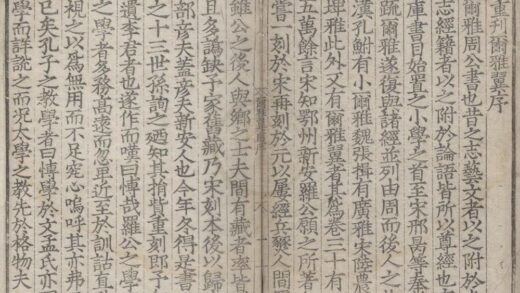 重刊爾雅翼序
爾雅周公書也昔之志藝文者以之附於
志經籍者以之附於論語皆所以尊經也
庫書目始置之小學之首至宋邢昺等奉
疏爾雅遂復與諸經並列由周而後人之
漢孔鮒有小爾雅魏張揖有廣雅宋陸農
埤雅此外又有爾雅翼者其爲卷三十有
五萬餘言宋知鄂州新安羅公願之所著
嘗一刻於宋再刻於元以屬經兵燹人間
雖公之後人與鄉之士大夫間有藏者率皆
且多譌缺予家舊藏乃宋刻本後以歸
部彦夫蓋彦夫新安人也今年冬得是書
之十三世孫詢之廼知其捐貲重刻即予
遺李君者也遂作而嘆曰博哉羅公之學
之學者多務高遠而忽卑近至於訓詁
視之以爲無用而不足究心嗚呼其亦弗
已矣孔子之教學者曰博學於文孟氏亦
學而詳說之而況太學之教先於格物夫